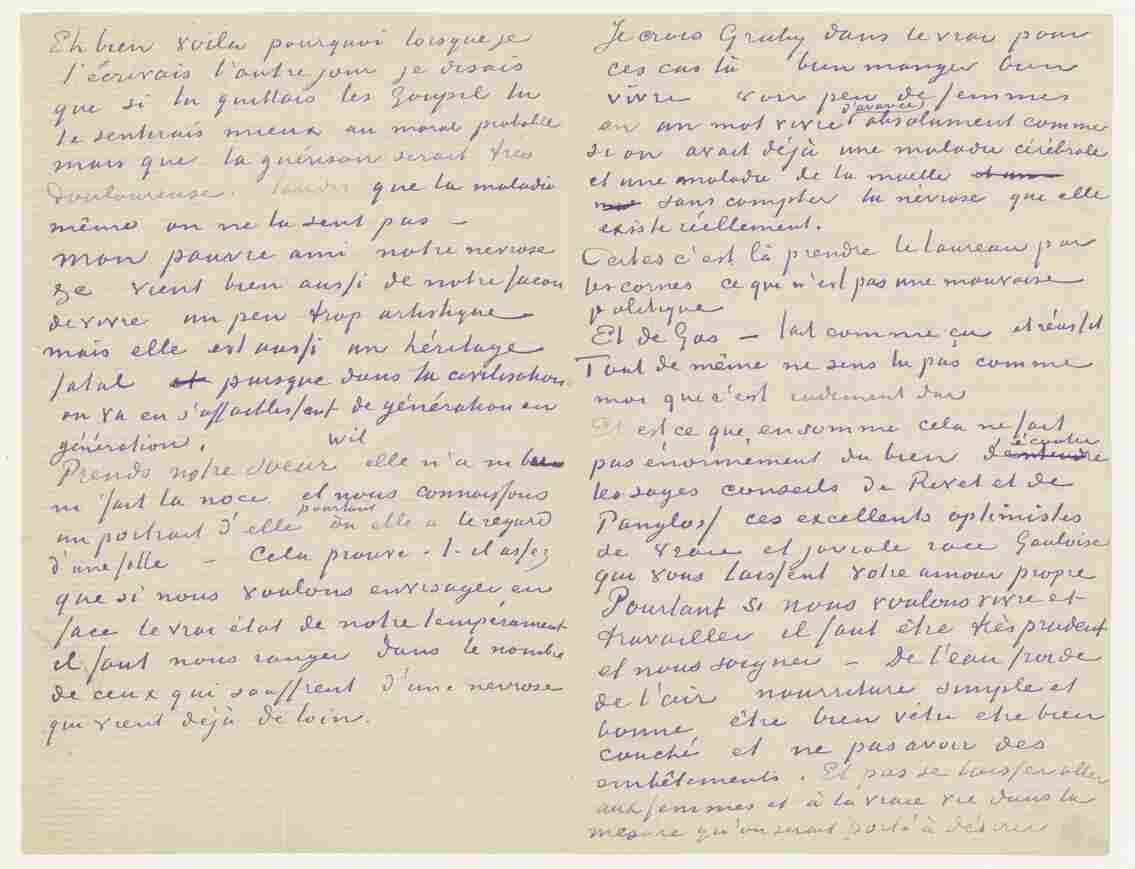 Eh bien voila pourquoi lorsque je
t'écrivais l'autre jour je disais
que si tu quittais les Goupil tu
te sentirais mieux au moral probable
mais que la guérison serait très
douloureuse. Tandis que la maladie
même on ne la sent pas –
mon pauvre ami notre nevrose
&c vient bien aussi de notre facon
de vivre un peu trop artistique
mais elle est aussi un héritage
fatal et puisque dans la civilisation
on va en s'affaiblissant de génération en
génération.
Prends notre soeur Wil elle n'a ni bu
ni fait la noce et nous connaissons
un portrait d'elle pourtant où elle a le regard
d'une folle – Cela prouve-t-il assez
que si nous voulons envisager en
face le vrai état de notre tempérament
il faut nous ranger dans le nombre
de ceux qui souffrent d'une nevrose
qui vient déjà de loin.
Je crois Gruby dans le vrai pour
ces cas là bien manger bien
vivre voir peu de femmes
en un mot vivre d'avance absolument comme
si on avait déjà une maladie cérébrale
et une maladie de la moelle
sans compter la névrose que elle
existe réellement.
Certes c'est là prendre le taureau par
les cornes ce qui n'est pas une mauvaise
politique
Et de Gas – fait comme ça et réussit
Tout de même ne sens tu pas comme
moi que c'est rudement dur
Et est ce que, en somme cela ne fait
pas énormement du bien d'écouter
les sages conseils de Rivet et de
Pangloss ces excellents optimistes
de vraie et joviale race Gauloise
qui vous laissent votre amour propre
Pourtant si nous voulons vivre et
travailler il faut être très prudent
et nous soigner – De l'eau froide
de l'air nourriture simple et
bonne être bien vêtu etre bien
couché et ne pas avoir des
embêtements. Et pas se laisser aller
aux femmes et à la vraie vie dans la
mesure qu'on serait porté à désirer